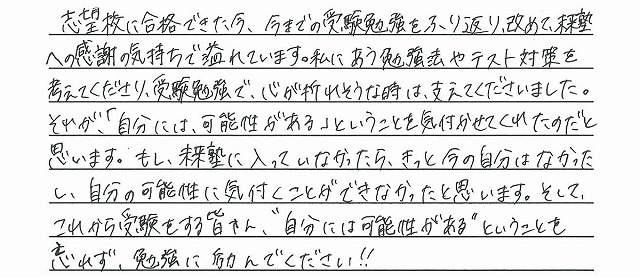 志望校に合格できた今、今までの受験勉強をふり返り、改めて、未来塾
への感謝の気持ちで溢れています。私にあう勉強法やテスト対策を
考えてくださり、受験勉強で、心が折れそうな時は、支えてくださいました。
それが、「自分には、可能性がある」ということを気付かせてくれたのだと
思います。もし、未来塾に入っていなかったら、きっと今の自分はなかった
し、自分の可能性に気付くことができなかったと思います。そして、
これから受験をする皆さん、“自分には可能性がある”ということを
忘れず、勉強に励んでください!!